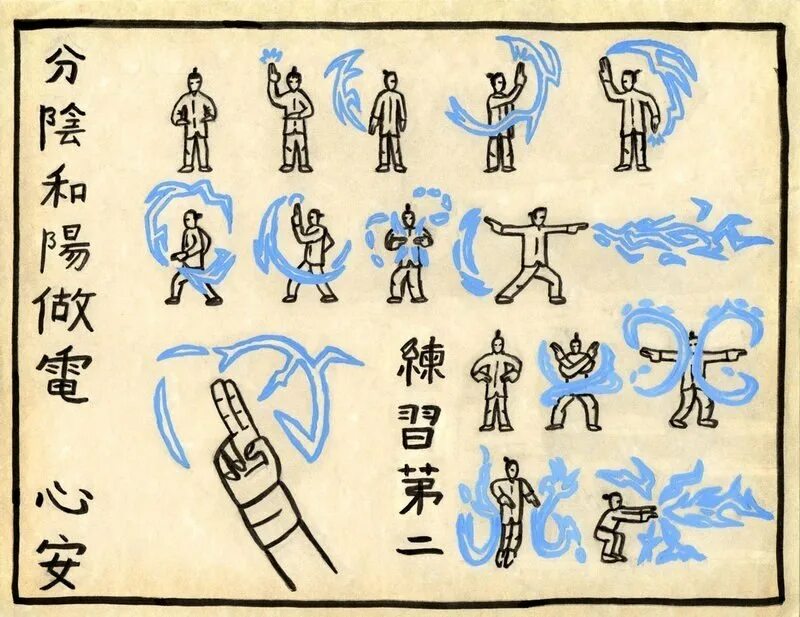 分陰和陽做電 心安
練習苐二